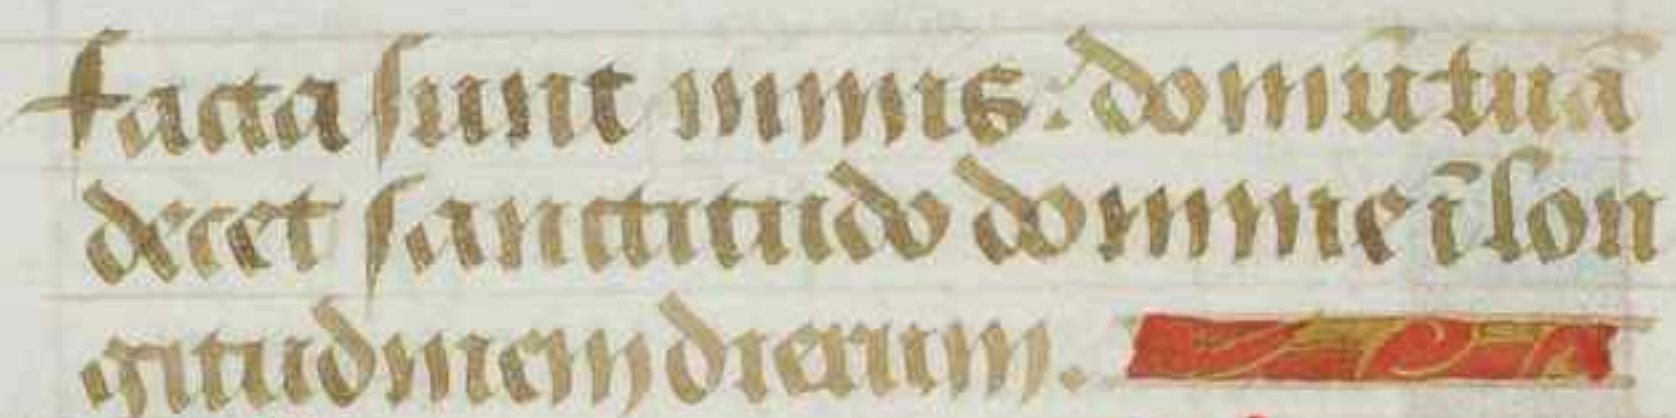 facta sunt nimis: domū tuā
decet sanctitudo domine ī lon
gitudinem dierum.